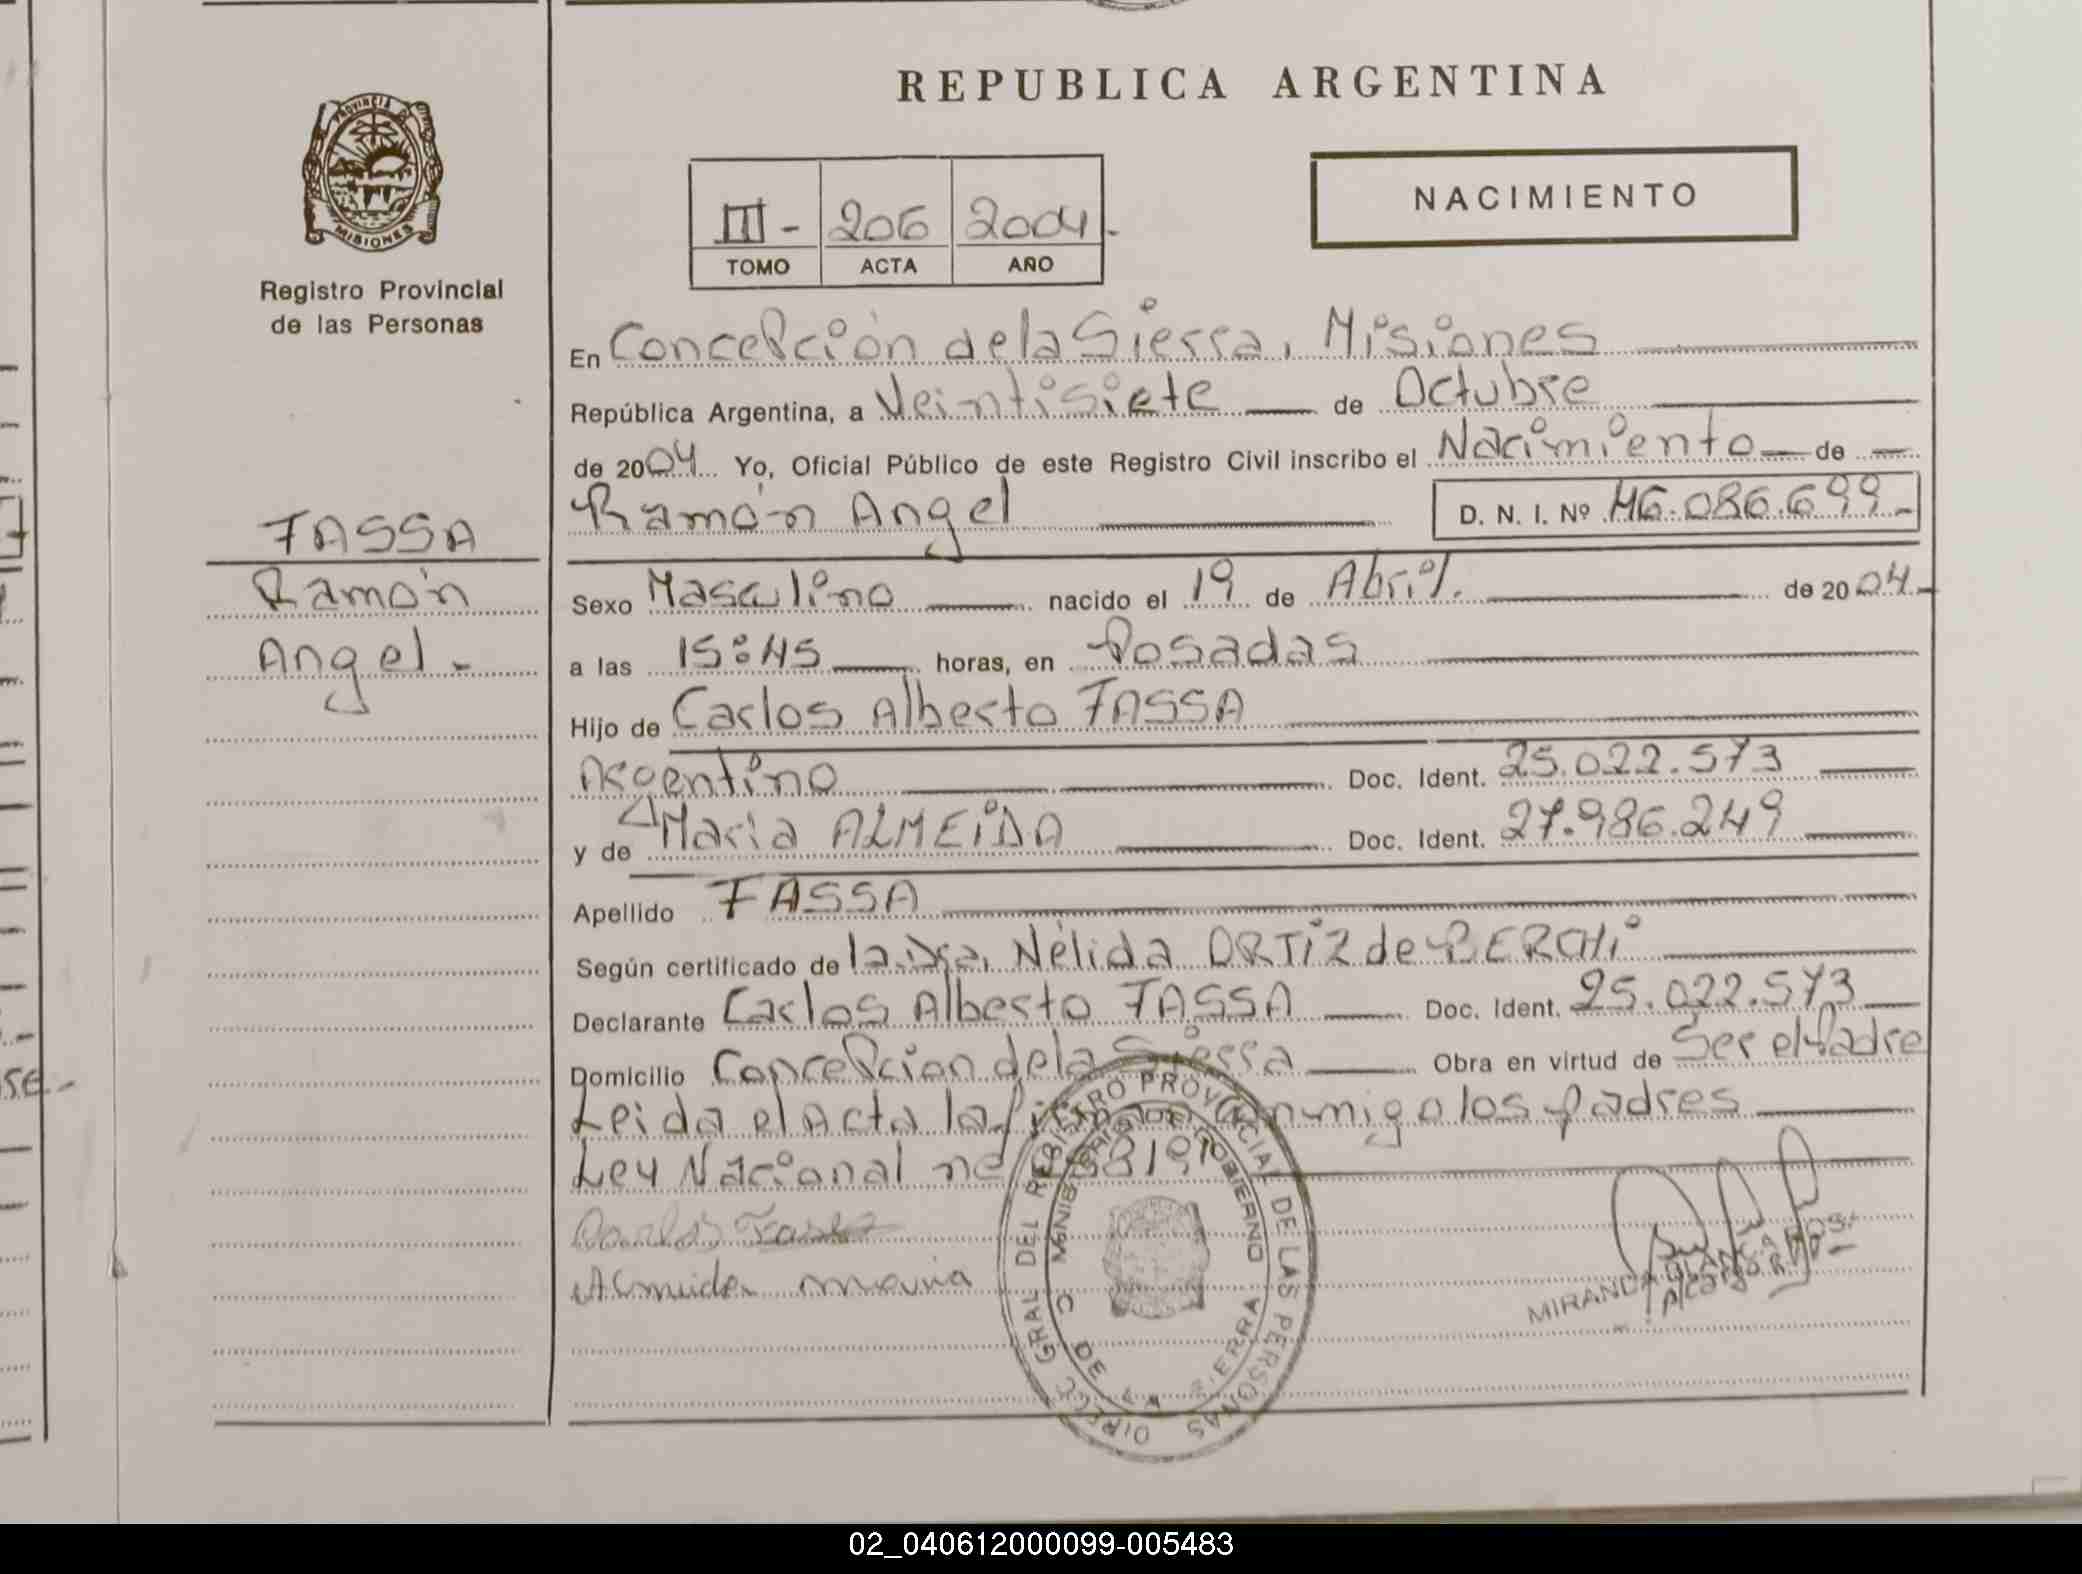 REPUBLICA ARGENTINA
PROVINCIA DE
MISIONES
Registro Provincial
de las Personas
NACIMIENTO
III - 206 2004.
TOMO ACTA AÑO
En Concepción de la Sierra, Misiones
República Argentina, a Veintisiete de Octubre
de 2004 Yo, Oficial Público de este Registro Civil inscribo el Nacimiento de
Ramón Angel D. N. I. Nº 46.086.699.-
TASSA
Ramón
Angel.-
Sexo Masculino nacido el 19 de Abril. de 2004.-
a las 15:45 horas, en Posadas
Hijo de Carlos Alberto TASSA
Argentino Doc. Ident. 25.022.573
y de Maria ALMEIDA Doc. Ident. 27.986.249
Apellido TASSA
Según certificado de la Dra. Nélida ORTIZ de BERCHI
Declarante Carlos Alberto TASSA Doc. Ident. 25.022.573
Domicilio Concepcion de la Sierra Obra en virtud de Ser el Padre
Leida el Acta la firman Conmigo los Padres
Ley Nacional nº
Carlos
Almeida maria
MIRANDA BLANCA
DIREC. GRAL DEL REGISTRO PROVINCIAL DE LAS PERSONAS
MINISTERIO DE GOBIERNO
C. DE LA SIERRA
02_040612000099-005483